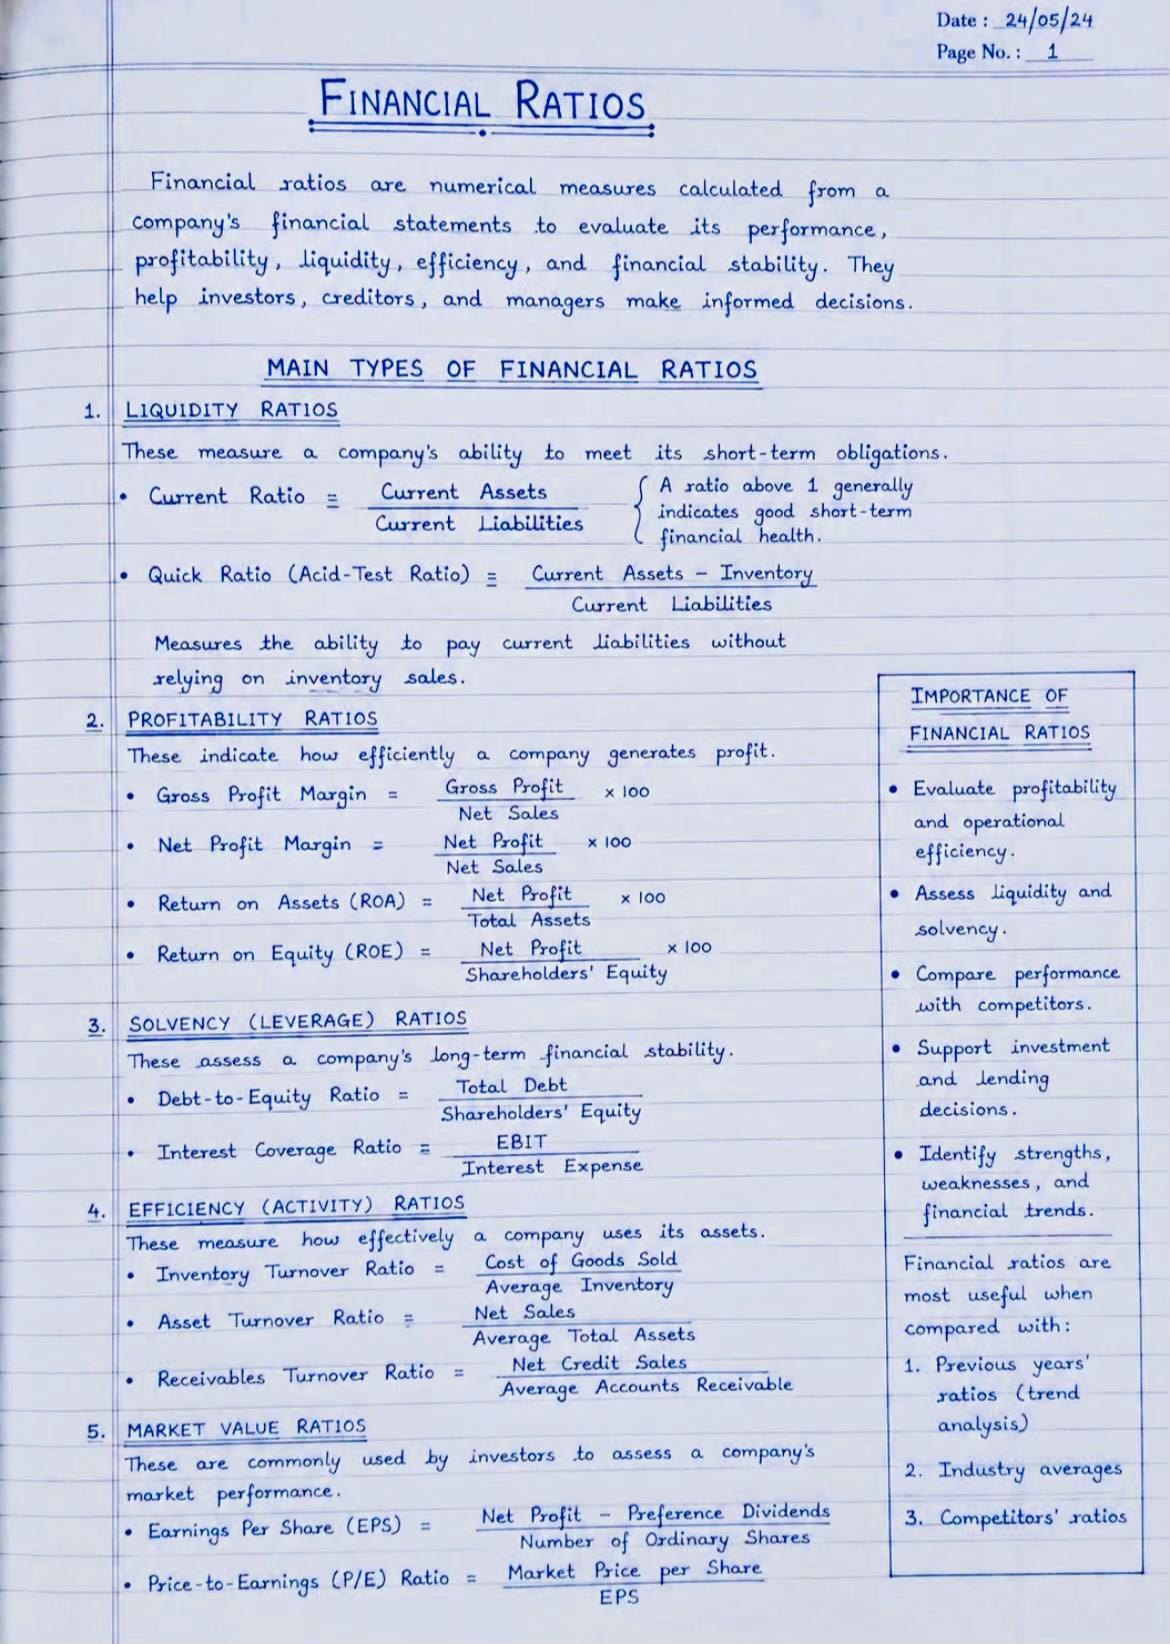 Date : 24/05/24
Page No. : 1
FINANCIAL RATIOS
Financial ratios are numerical measures calculated from a
company's financial statements to evaluate its performance,
profitability, liquidity, efficiency, and financial stability. They
help investors, creditors, and managers make informed decisions.
MAIN TYPES OF FINANCIAL RATIOS
1. LIQUIDITY RATIOS
These measure a company's ability to meet its short-term obligations.
• Current Ratio = Current Assets
Current Liabilities
{ A ratio above 1 generally
indicates good short-term
financial health.
• Quick Ratio (Acid-Test Ratio) = Current Assets - Inventory
Current Liabilities
Measures the ability to pay current liabilities without
relying on inventory sales.
2. PROFITABILITY RATIOS
These indicate how efficiently a company generates profit.
• Gross Profit Margin = Gross Profit x 100
Net Sales
• Net Profit Margin = Net Profit x 100
Net Sales
• Return on Assets (ROA) = Net Profit x 100
Total Assets
• Return on Equity (ROE) = Net Profit x 100
Shareholders' Equity
3. SOLVENCY (LEVERAGE) RATIOS
These assess a company's long-term financial stability.
• Debt-to-Equity Ratio = Total Debt
Shareholders' Equity
• Interest Coverage Ratio = EBIT
Interest Expense
4. EFFICIENCY (ACTIVITY) RATIOS
These measure how effectively a company uses its assets.
• Inventory Turnover Ratio = Cost of Goods Sold
Average Inventory
• Asset Turnover Ratio = Net Sales
Average Total Assets
• Receivables Turnover Ratio = Net Credit Sales
Average Accounts Receivable
5. MARKET VALUE RATIOS
These are commonly used by investors to assess a company's
market performance.
• Earnings Per Share (EPS) = Net Profit - Preference Dividends
Number of Ordinary Shares
• Price-to-Earnings (P/E) Ratio = Market Price per Share
EPS
IMPORTANCE OF
FINANCIAL RATIOS
• Evaluate profitability
and operational
efficiency.
• Assess liquidity and
solvency.
• Compare performance
with competitors.
• Support investment
and lending
decisions.
• Identify strengths,
weaknesses, and
financial trends.
Financial ratios are
most useful when
compared with:
1. Previous years'
ratios (trend
analysis)
2. Industry averages
3. Competitors' ratios